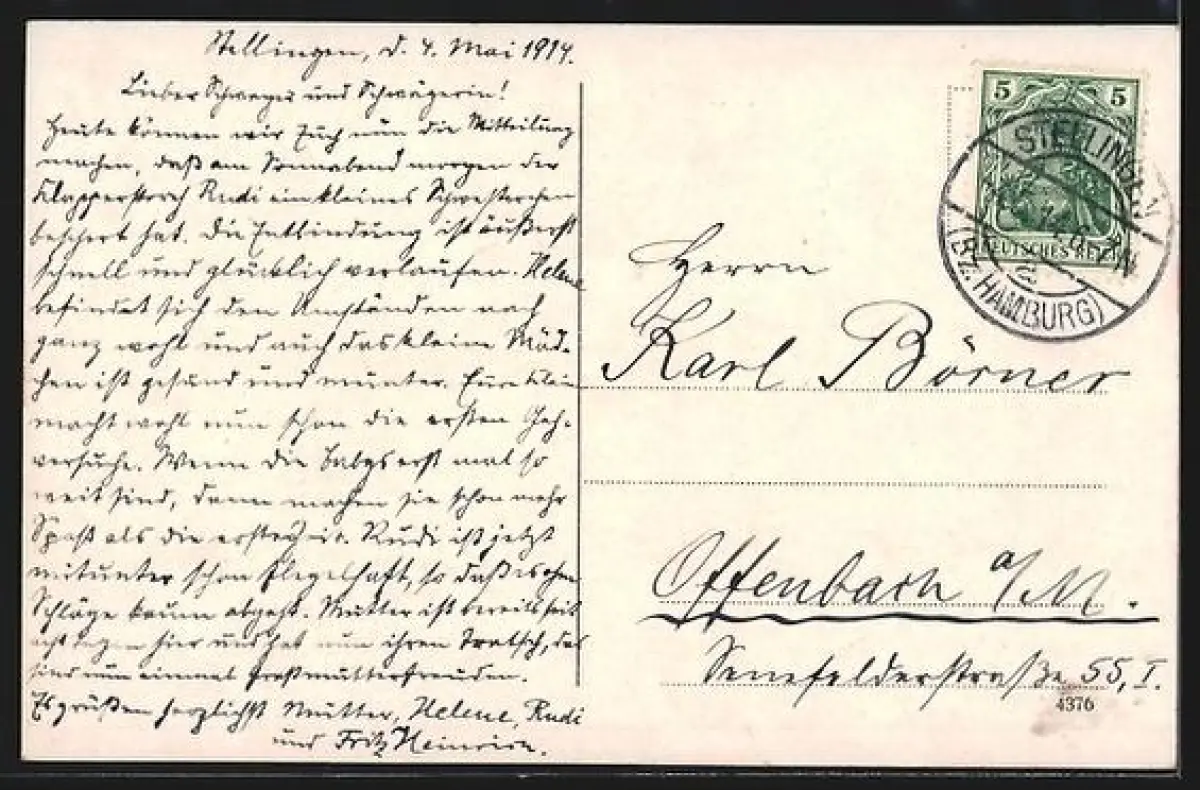 Stellingen, d. 4. Mai 1914.
Lieber Schwager und Schwägerin!
Heute können wir Euch nun die Mitteilung
machen, daß am Sonnabend morgen der
Klapperstorch Rudi ein kleines Schwesterchen
beschert hat. Die Entbindung ist äußerst
schnell und glücklich verlaufen. Helene
befindet sich den Umständen nach
ganz wohl und auch das kleine Mäd-
chen ist gesund und munter. Eure Klein
macht wohl nun schon die ersten Geh-
versuche. Wenn die Babys erst mal so
weit sind, dann machen sie schon mehr
Spaß als die erste Zeit. Rudi ist jetzt
mitunter schon flegelhaft, so daß es ohne
Schläge kaum abgeht. Mutter ist bereits seit
acht Tagen hier und hat nun ihren Tratsch, das
sind nun einmal Großmutterfreuden.
Es grüßen herzlichst Mutter, Helene, Rudi
und Fritz
5 5
DEUTSCHES REICH
STELLINGEN
(BZ. HAMBURG)
Herrn
Karl Börner
Offenbach a/M.
Senefelderstraße 55, I.
4376